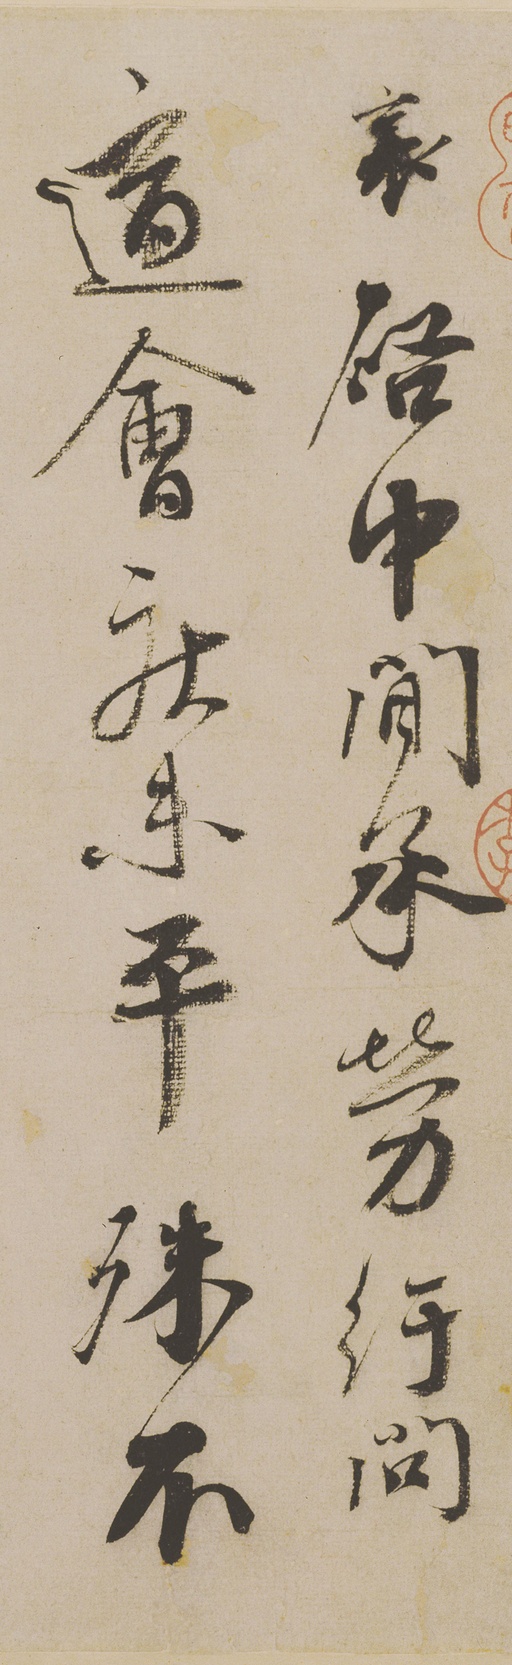 襄啓中間承勞行問
適會疏未平殊不